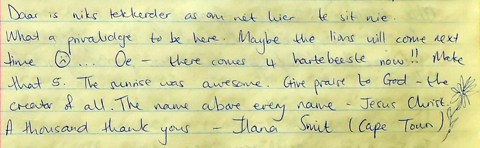 Daar is niks lekkerder as om net hier te sit nie.
What a privalidge to be here. Maybe the lions will come next
time ☹... Oe - there comes 4 hartebeeste now!! Make
that 5. The sunrise was awesome. Give praise to God - the
creator of all. The name above every name - Jesus Christ.
A thousand thank yous - Ilana Smit (Cape Town)